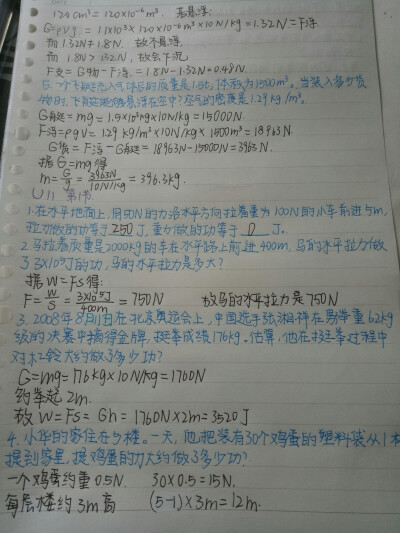 120cm³=120×10⁻⁶m³. 若悬浮:
G=ρvg=1.1×10³×120×10⁻⁶m³×10N/kg=1.32N=F浮
而1.32N≠1.8N. 故不悬浮
而1.8N>1.32N, 故会下沉
F支=G物-F浮=1.8N-1.32N=0.48N
5. 一个飞艇充入气体后的质量是1.5t,体积为1500m³。当装入多少货
物时,飞艇能悬浮在空中?空气的密度是1.29kg/m³。
G艇=mg=1.5×10³kg×10N/kg=15000N.
F浮=ρgV=1.29kg/m³×10N/kg×1500m³=18963N
G货=F浮-G艇=18963N-15000N=3963N.
据G=mg得
m=G/g=3963N/10N/kg=396.3kg.
U11 第1节
1.在水平地面上,用50N的力沿水平方向拉着重为100N的小车前进5m,
拉力做的功等于250J,重力做的功等于0J。
2.马拉着质量是2000kg的车在水平路上前进400m,马的水平拉力做
了3×10⁵J的功,马的水平拉力是多大?
据W=FS得:
F=W/S=3×10⁵J/400m=750N 故马的水平拉力是750N
3. 2008年8月11日在北京奥运会上,中国选手张湘祥在男举重62kg
级的决赛中摘得金牌,挺举成绩176kg。估算,他在挺举过程中
对杠铃大约做了多少功?
G=mg=176kg×10N/kg=1760N
约举起2m.
故W=FS=Gh=1760N×2m=3520J
4. 小华的家住在5楼。一天,他把装有30个鸡蛋的塑料袋从1楼
提到家里,提鸡蛋的力大约做了多少功?
一个鸡蛋约重0.5N. 30×0.5=15N.
每层楼约3m高 (5-1)×3m=12m.